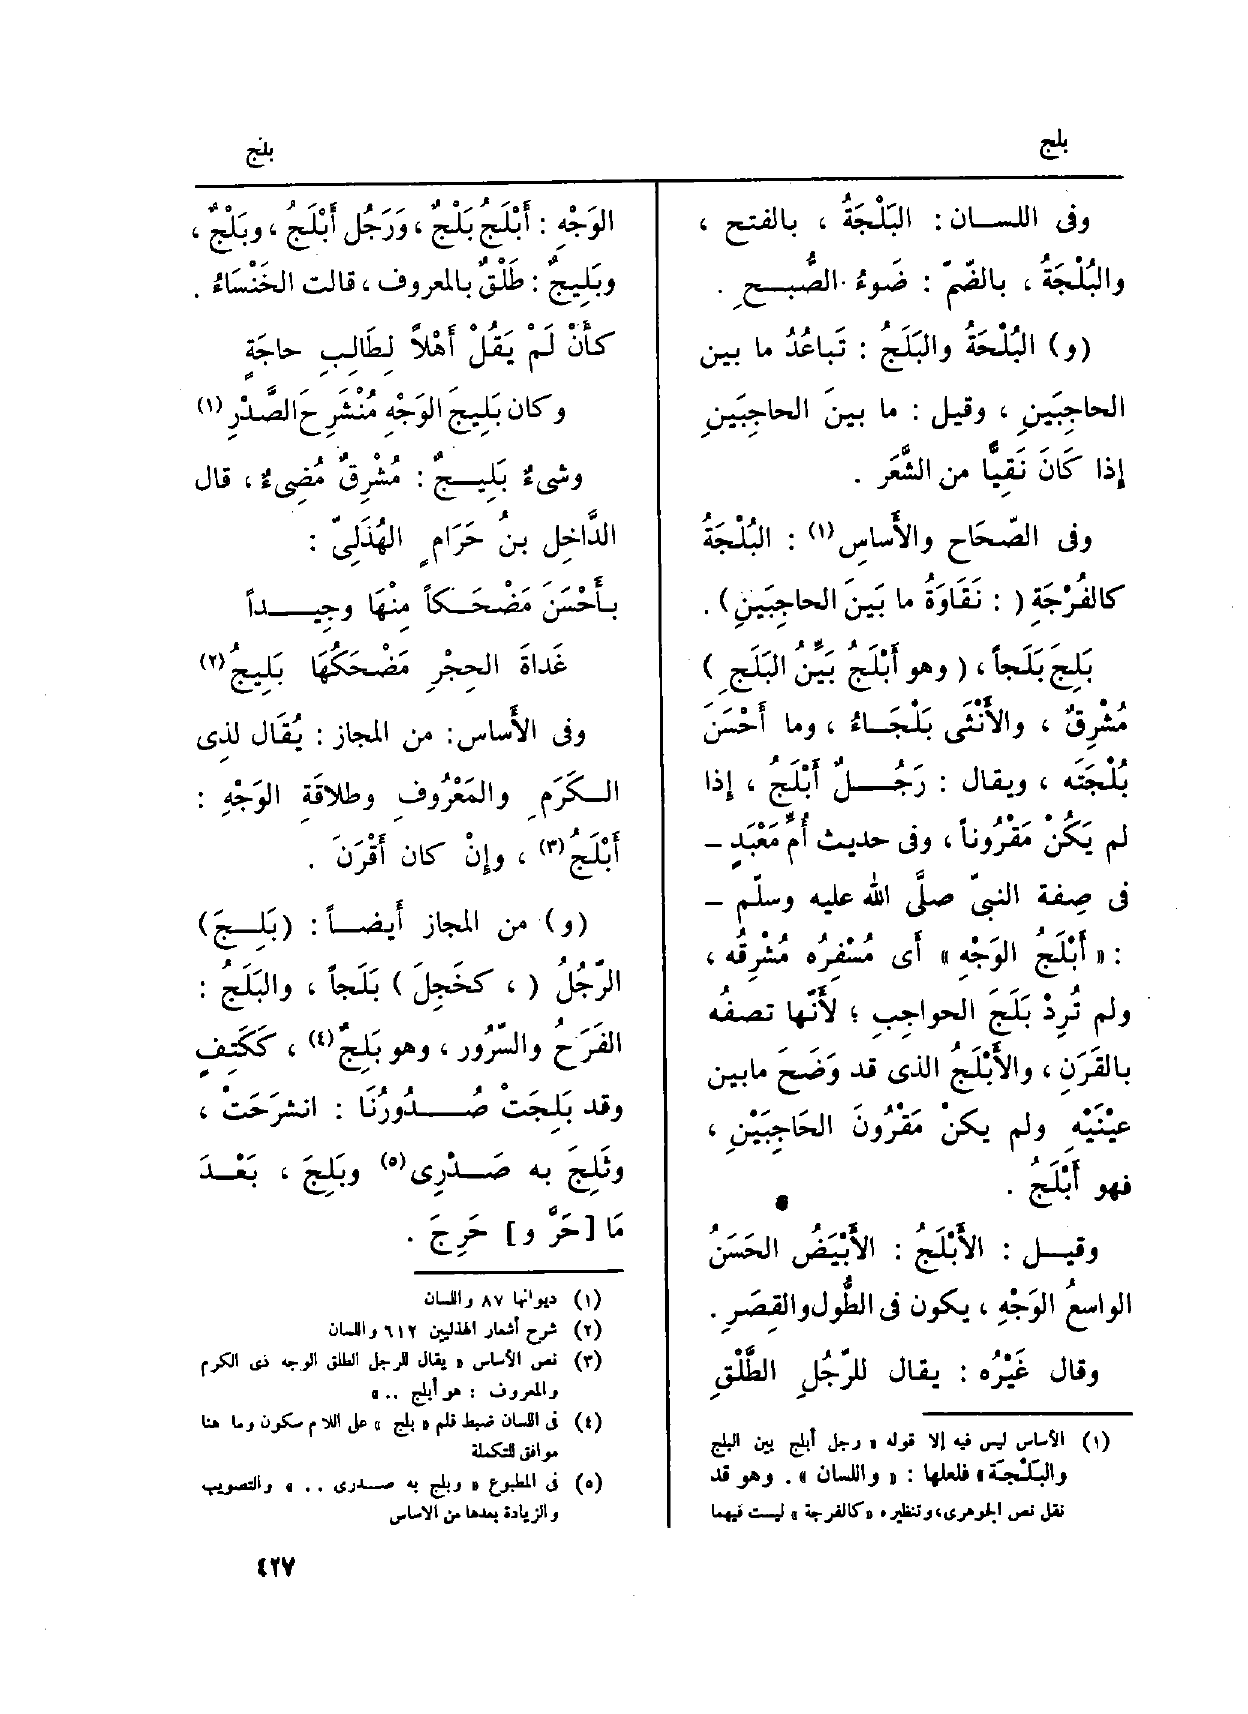 بلج
بلج
وفى اللسان : البَلْجَةُ ، بالفتح ،
والبُلْجَةُ ، بالضّمّ : ضَوءُ الصُّبح .
(و) البُلْجَةُ والبَلَجُ : تَباعُدُ ما بين
الحاجِبَينِ ، وقيل : ما بينَ الحاجِبَينِ
إذا كَانَ نَقِيًّا من الشَّعَر .
وفى الصّحَاح والأَساسِ(١) : البُلْجَةُ
كالفُرْجَةِ ( : نَقَاوَةُ ما بَينَ الحاجِبَينِ) .
بَلِجَ بَلَجاً ، ( وهو أَبْلَجُ بَيِّنُ البَلَجِ )
مُشْرِقٌ ، والأُنْثَى بَلْجَاءُ ، وما أَحْسَنَ
بُلْجَتَه ، ويقال : رَجُلٌ أَبْلَجُ ، إذا
لم يَكُنْ مَقْرُوناً ، وفى حديث أُمِّ مَعْبَدٍ –
فى صِفة النبىّ صلَّى الله عليه وسلّم –
: « أَبْلَجُ الوَجْهِ » أى مُسْفِرُه مُشْرِقُه ،
ولم تُرِدْ بَلَجَ الحواجِبِ ؛ لأَنّها تصفُه
بالقَرَنِ ، والأَبْلَجُ الذى قد وَضَحَ مابين
عيْنَيْهِ ولم يكنْ مَقْرُونَ الحَاجِبَيْنِ ،
فهو أَبْلَجُ .
وقيل : الأَبْلَجُ : الأَبْيَضُ الحَسَنُ
الواسعُ الوَجْهِ ، يكون فى الطُّول والقِصَرِ .
وقال غَيْرُه : يقال للرّجُلِ الطَّلْقِ
(١) الأساس ليس فيه إلا قوله « رجل أبلج بين البلج
والبَلْجَة » فلعلها : « واللسان » . وهو قد
نقل نص الجوهرى، وتنظيره « كالفرجة » ليست فيهما
الوَجْهِ : أَبْلَجُ بَلْجٌ ، وَرَجُل أَبْلَجُ ، وبَلْجٌ ،
وبَلِيجٌ : طَلْقٌ بالمعروف ، قالت الخَنْسَاءُ .
كأَنْ لَمْ يَقُلْ أَهْلاً لِطَالِبِ حاجَةٍ
وكان بَلِيجَ الوَجْهِ مُنْشَرِحَ الصَّدْرِ (١)
وشىءٌ بَلِيجٌ : مُشْرِقٌ مُضِىءٌ ، قال
الدَّاخِل بنُ حَرَامٍ الهُذَلِىّ :
بأَحْسَنَ مَضْحَكاً مِنْهَا وجِيداً
غَداةَ الحِجْرِ مَضْحَكُهَا بَلِيجُ (٢)
وفى الأَساس: من المجاز : يُقَال لذى
الكَرَمِ والمَعْرُوفِ وطلاقَةِ الوَجْهِ :
أَبْلَجُ (٣) ، وإنْ كان أَقْرَنَ .
(و) من المجاز أيضاً : (بَلِجَ)
الرّجُلُ ( ، كخَجِلَ ) بَلَجاً ، والبَلَجُ :
الفَرَحُ والسّرُور ، وهو بَلِجٌ (٤) ، كَكَتِفٍ
وقد بَلِجَتْ صُدُورُنَا : انشرَحَتْ ،
وثَلِجَ به صَدْرِى (٥) وبَلِجَ ، بَعْدَ
مَا [حَرَّ و] حَرِجَ .
(١) ديوانها ٨٧ واللسان
(٢) شرح أشعار الهذليين ٦١٢ واللسان
(٣) نص الأساس « يقال للرجل الطلق الوجه ذى الكرم
والمعروف : هو أبلج .. »
(٤) فى اللسان ضبط قلم « بلج » على اللام سكون وما هنا
موافق التكملة
(٥) فى المطبوع « وبلج به صدرى .. » والتصويب
والزيادة بعدها من الاساس
٤٢٧